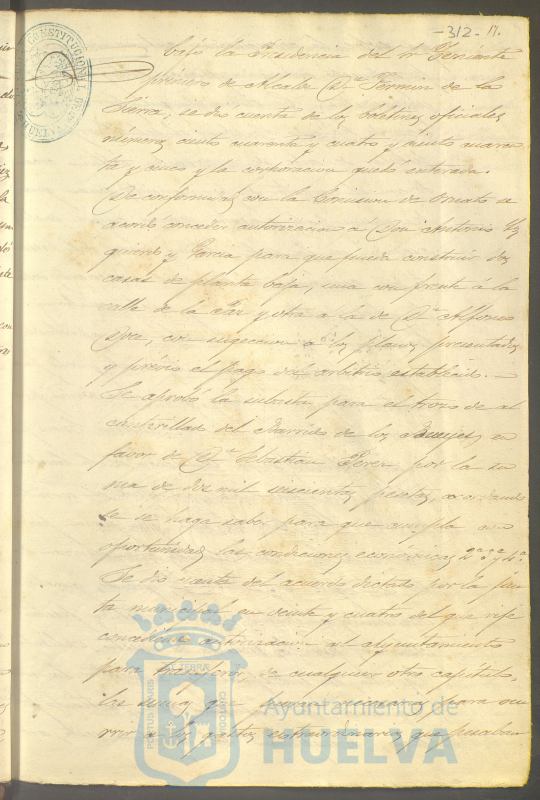 -312- 17.
bajo la Presidencia del Sr Teniente
primero de Alcalde Dn Fermin de la
Sierra, se dio cuenta de los boletines oficiales
números ciento cuarenta y cuatro y ciento cuaren
ta y cinco y la corporacion quedó enterada.
De conformidad con la Comision de Ornato se
acordó conceder autorizacion á Don Antonio Yz
quierdo y Garcia para que pueda construir dos
casas de planta baja, una con frente á la
calle de la Paz y otra á la de Dn Alfonso
doce, con sugecion á los planos presentados
y prévio el pago del arbitrio establecido.—
Se aprobó la subasta para el trozo de al
cantarillado del Barrido de los Bueyes, en
favor de Dn Sebastian Perez por la su
ma de dos mil seiscientas pesetas, acordando
se se haga saber para que cumpla con
oportunidad las condiciones económicas 2ª 3ª y 4ª
Se dio cuenta del acuerdo dictado por la jun
ta municipal en veinte y cuatro del que rije
concediendo autorizacion al Ayuntamiento
para transferir de cualquier otro capítulo
las sumas que para ocu
rrir á los gastos extraordinarios que puedan
Ayuntamiento de
HUELVA